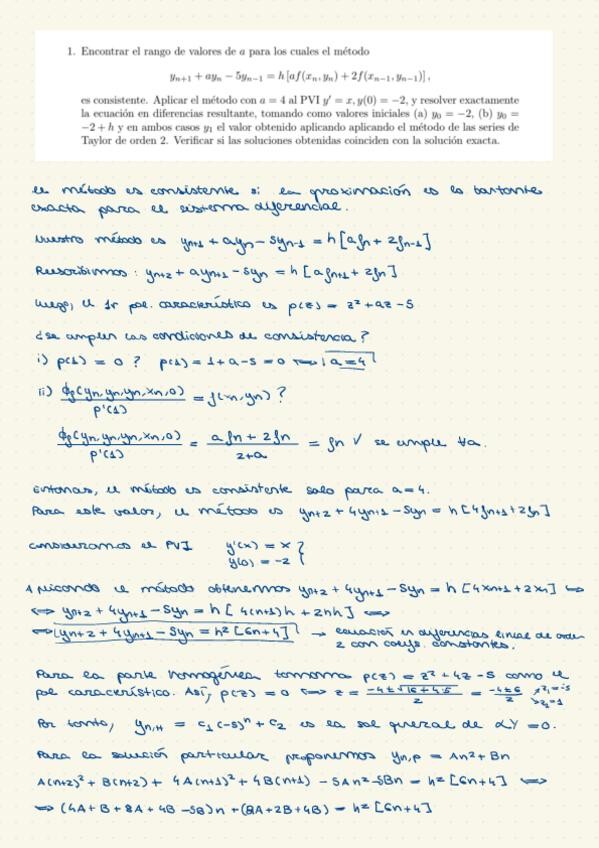 1. Encontrar el rango de valores de a para los cuales el método
y_{n+1} + ay_n − 5y_{n−1} = h [af(x_n, y_n) + 2f(x_{n−1}, y_{n−1})],
es consistente. Aplicar el método con a = 4 al PVI y′ = x, y(0) = −2, y resolver exactamente
la ecuación en diferencias resultante, tomando como valores iniciales (a) y_0 = −2, (b) y_0 =
−2 + h y en ambos casos y_1 el valor obtenido aplicando aplicando el método de las series de
Taylor de orden 2. Verificar si las soluciones obtenidas coinciden con la solución exacta.
el método es consistente si la aproximación es lo bastante
exacta para el sistema diferencial.
Nuestro método es y_{n+1} + ay_n − 5y_{n-1} = h[af_n + 2f_{n-1}]
Reescribimos: y_{n+2} + ay_{n+1} − 5y_n = h[af_{n+1} + 2f_n]
Luego, el 1r pol. característico es p(z) = z² + az − 5
¿se cumplen las condiciones de consistencia?
i) p(1) = 0 ? p(1) = 1 + a − 5 = 0 ⟺ a = 4
ii) ϕ_f(y_n, y_n, y_n, x_n, 0) / p'(1) = f(x_n, y_n) ?
ϕ_f(y_n, y_n, y_n, x_n, 0) / p'(1) = (a f_n + 2f_n) / (2+a) = f_n ✓ se cumple ∀a.
Entonces, el método es consistente solo para a = 4.
Para este valor, el método es y_{n+2} + 4y_{n+1} − 5y_n = h[4f_{n+1} + 2f_n]
consideramos el PVI y'(x) = x
y(0) = −2 }
Aplicando el método obtenemos y_{n+2} + 4y_{n+1} − 5y_n = h[4x_{n+1} + 2x_n] ⟺
⟺ y_{n+2} + 4y_{n+1} − 5y_n = h[4(n+1)h + 2nh] ⟺
⟺ y_{n+2} + 4y_{n+1} − 5y_n = h²[6n+4] → ecuación en diferencias lineal de orden
2 con coefs. constantes.
Para la parte homogénea tomamos p(z) = z² + 4z − 5 como el
pol característico. Así, p(z) = 0 ⟺ z = (−4 ± √(16 + 4·5)) / 2 = (−4 ± 6) / 2 → z_1 = −5 → z_2 = 1
Por tanto, y_{n,H} = c_1(−5)^n + c_2 es la sol general de αY = 0.
Para la solución particular proponemos y_{n,p} = An² + Bn
A(n+2)² + B(n+2) + 4A(n+1)² + 4B(n+1) − 5An² − 5Bn = h²[6n+4] ⟺
⟺ (4A + B + 8A + 4B − 5B)n + (8A + 2B + 4B) = h²[6n+4]